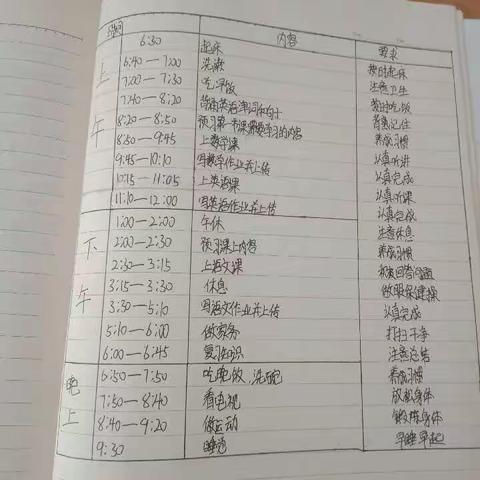 时间 内容 要求
上午
6:30 起床 按时起床
6:40—7:00 洗漱 注意卫生
7:00—7:30 吃早饭 按时吃饭
7:40—8:20 背诵英语单词和句子 背熟记住
8:20—8:50 预习第一节课需要学习的内容 养成习惯
8:50—9:45 上数学课 认真听讲
9:45—10:10 写数学作业并上传 认真完成
10:15—11:05 上英语课 认真听课
11:10—12:00 写英语作业并上传 认真完成
下午
1:00—2:00 午休 注意休息
2:00—2:30 预习课上内容 养成习惯
2:30—3:15 上语文课 积极回答问题
3:15—3:30 休息 做眼保健操
3:30—5:10 写语文作业并上传 认真完成
5:10—6:00 做家务 打扫干净
6:00—6:45 复习知识 注意总结
晚上
6:50—7:50 吃晚饭,洗碗 养成习惯
7:50—8:40 看电视 放松身体
8:40—9:20 做运动 锻炼身体
9:30 睡觉 早睡早起